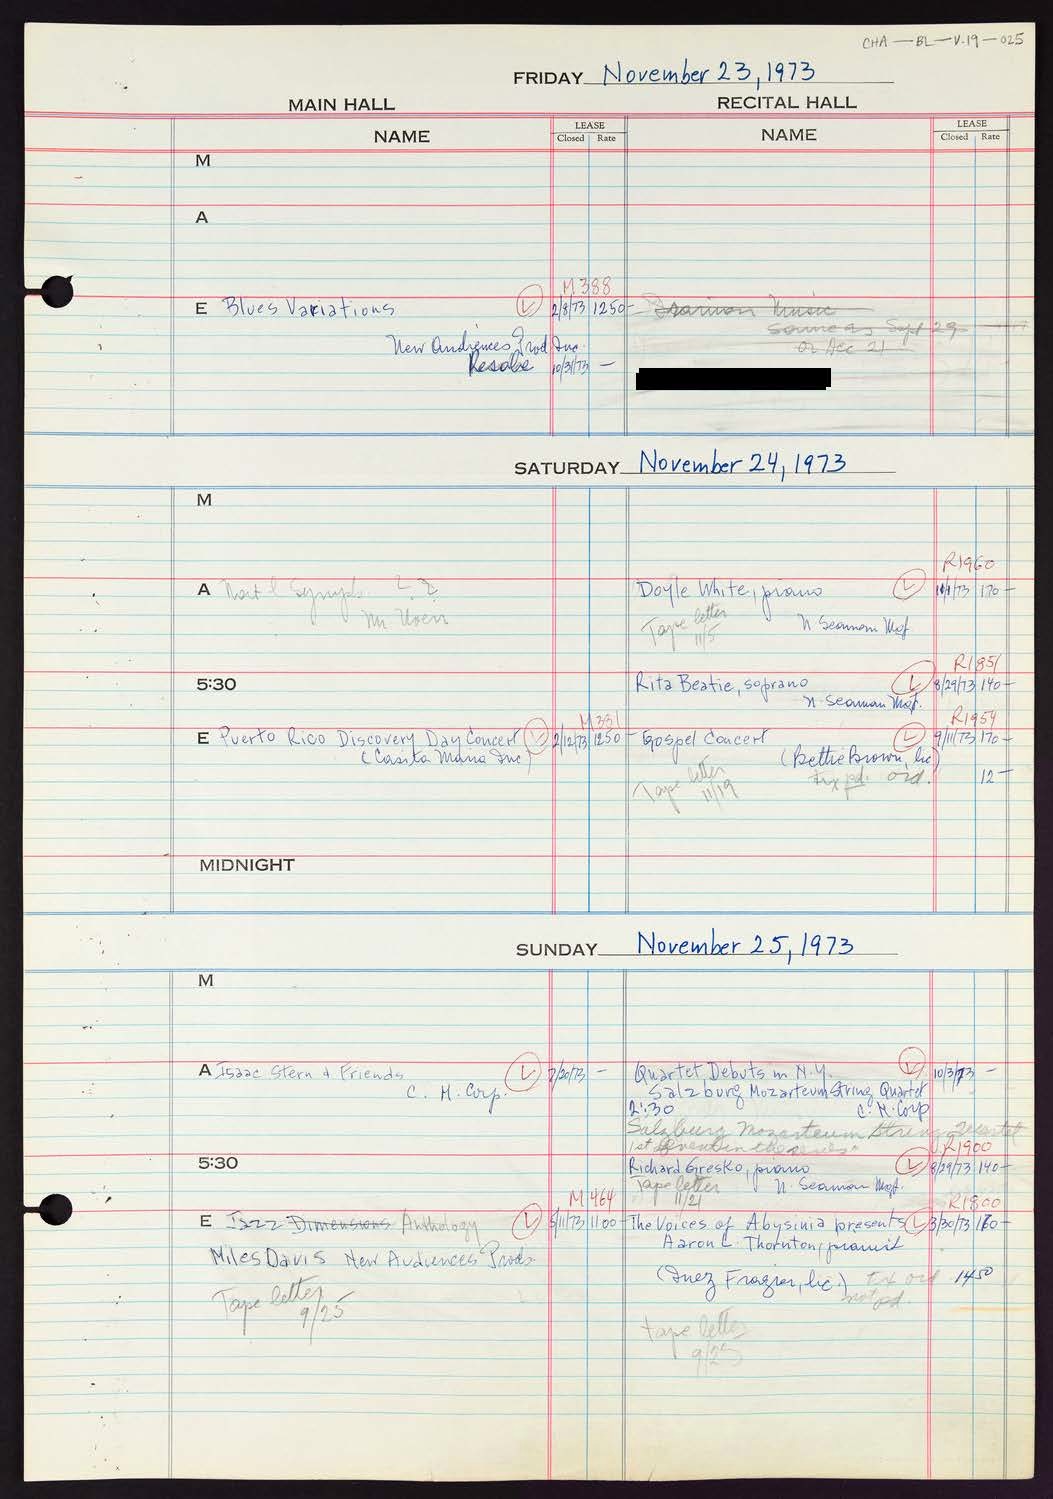 CHA — BL — V.19 — 025
FRIDAY November 23, 1973
MAIN HALL RECITAL HALL
NAME LEASE Closed Rate NAME LEASE Closed Rate
M
A
M 388
E Blues Variations L 2/8/73 1250 –
New Audiences Prod Inc.
Resale 10/31/73 —
Music
same as Sept 29
or Dec 21
SATURDAY November 24, 1973
M
R1960
A Nat'l Symph. ? ? Doyle White, piano L 10/1/73 170 –
Mr
Tape letter N Seaman Mgt
11/5
R1851
5:30 Rita Beatie, soprano L 8/29/73 140 –
N. Seaman Mgt.
M 331 R1954
E Puerto Rico Discovery Day Concert L 2/12/73 1250 – Gospel Concert L 9/11/73 170 –
(Casita Maria Inc) (Bettie Brown, lic)
Tape letter tix pd. ord. 12 –
11/19
MIDNIGHT
SUNDAY November 25, 1973
M
A Isaac Stern & Friends L 7/20/73 – Quartet Debuts in N.Y. L 10/3/73 –
C. H. Corp. Salzburg Mozarteum String Quartet
2:30 C. H. Corp
Salzburg Mozarteum String Quartet
1st event in the series
R1900
5:30 Richard Gresko, piano L 8/29/73 140 –
Tape letter N. Seaman Mgt.
11/21
M 464 R1800
E Jazz Dimensions Anthology L 5/11/73 1100 – The Voices of Abysinia presents L 3/30/73 –
Miles Davis New Audiences Prods. Aaron L. Thornton, pianist
(Inez Frazier, lic.) tix ord 14.50
not pd.
Tape letter
9/25
tape letter
9/25